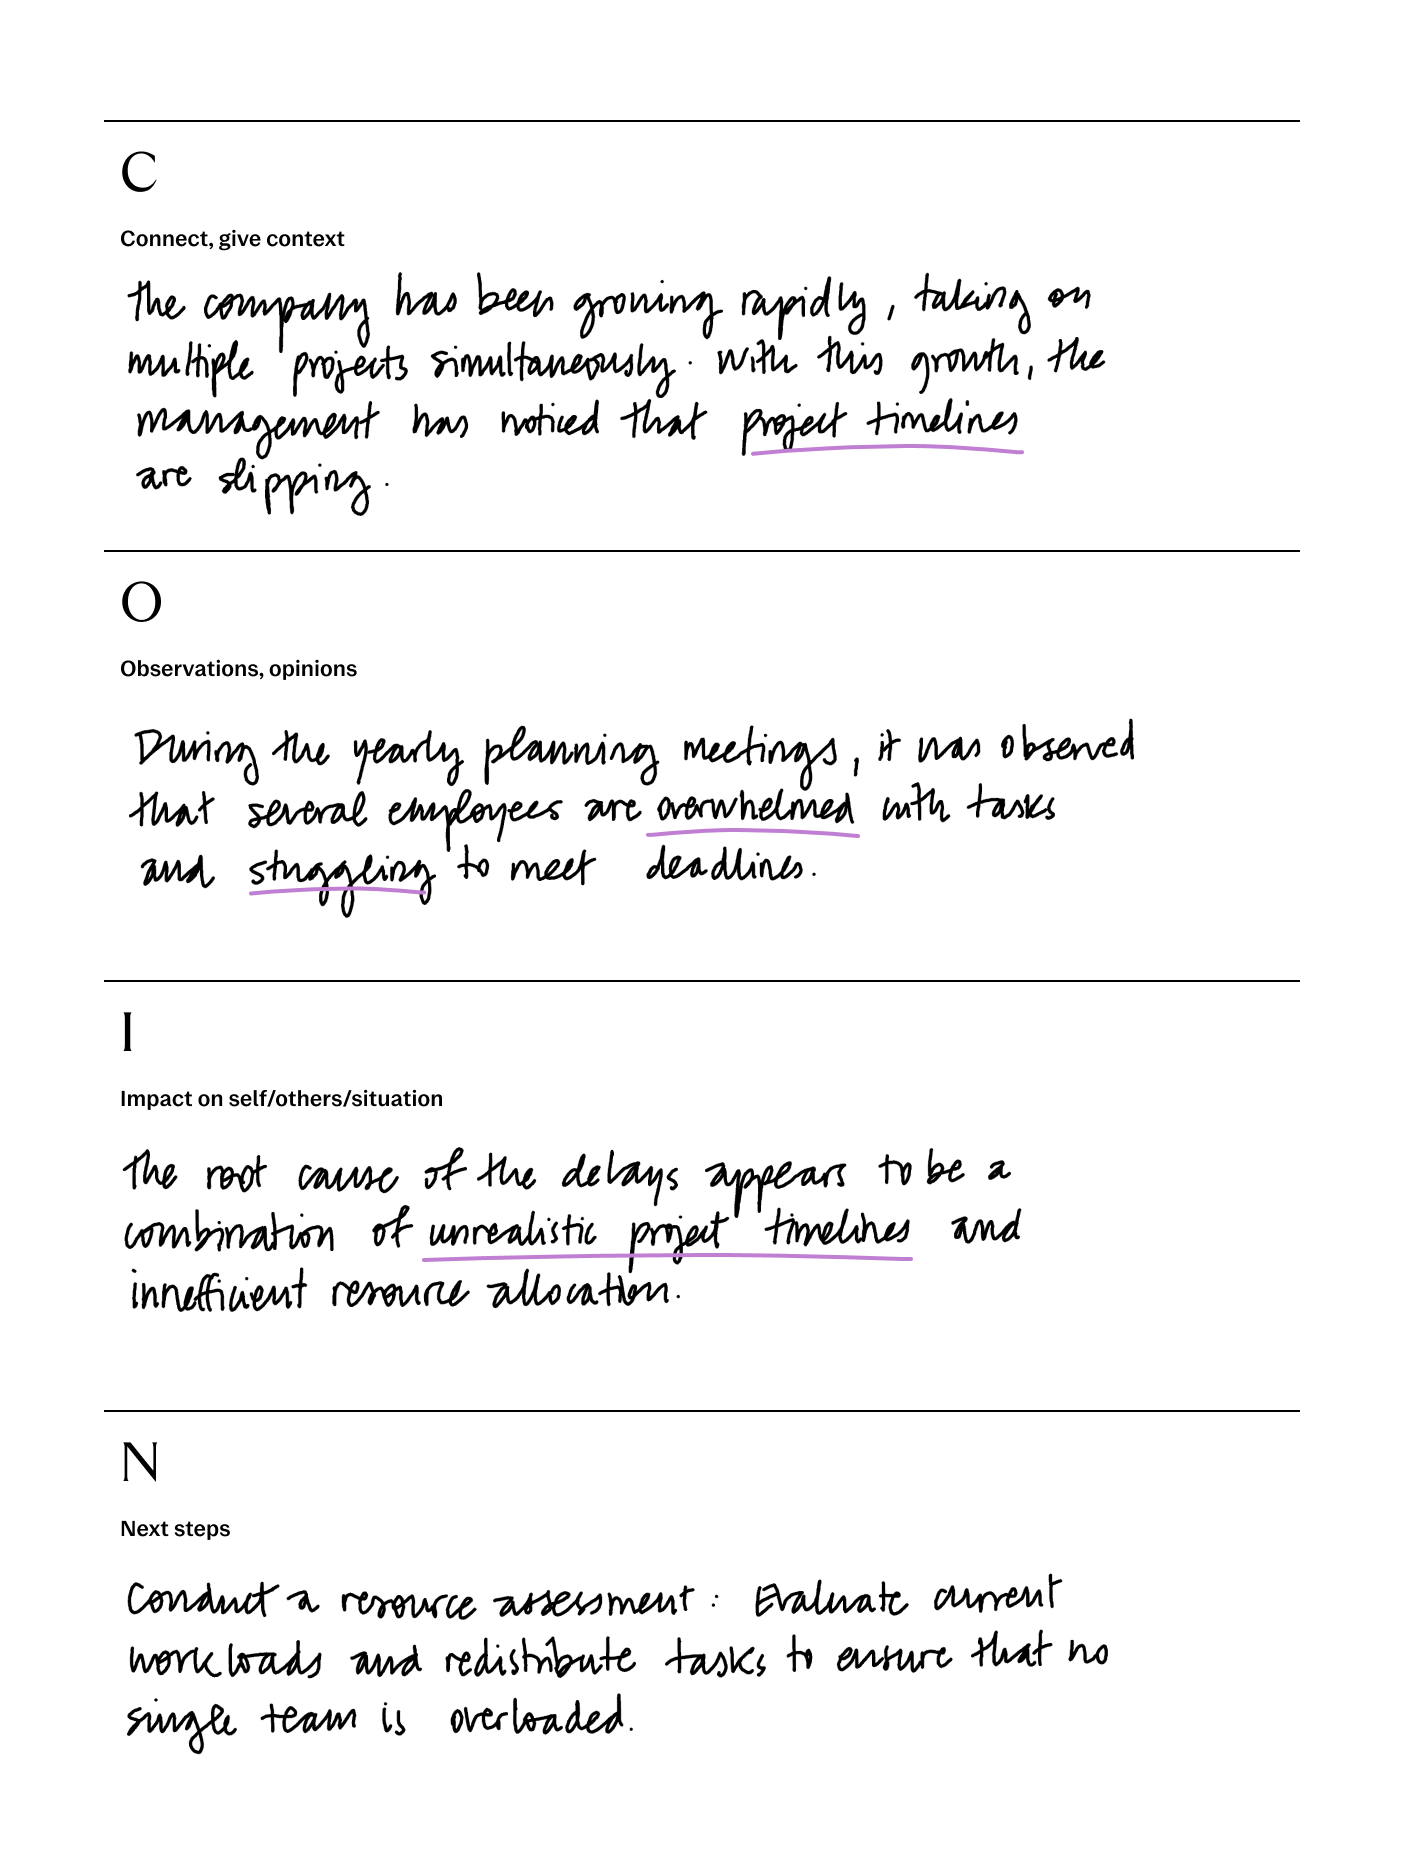 C
Connect, give context
the company has been growing rapidly, taking on
multiple projects simultaneously. With this growth, the
management has noticed that project timelines
are slipping.
O
Observations, opinions
During the yearly planning meetings, it was observed
that several employees are overwhelmed with tasks
and struggling to meet deadlines.
I
Impact on self/others/situation
The root cause of the delays appears to be a
combination of unrealistic project timelines and
innefficient resource allocation.
N
Next steps
Conduct a resource assessment: Evaluate current
workloads and redistribute tasks to ensure that no
single team is overloaded.